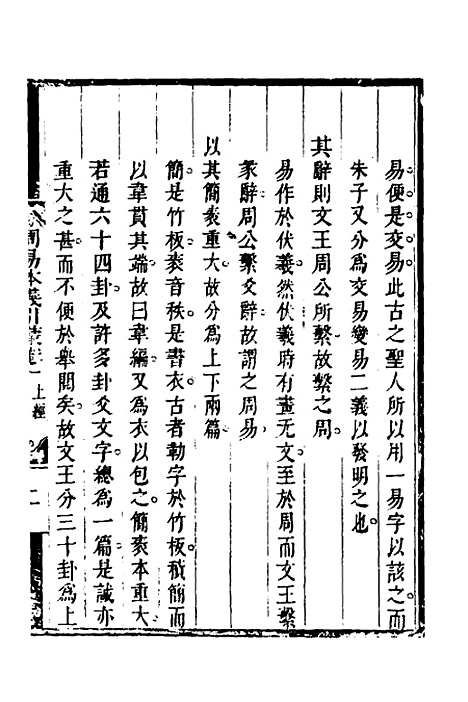 易便是交易此古之聖人所以用一易字以該之而
朱子又分爲交易變易二義以發明之也
其辭則文王周公所繫故繫之周
易作於伏羲然伏羲時有畫无文至於周而文王繫
彖辭周公繫爻辭故謂之周易
以其簡袠重大故分爲上下兩篇
簡是竹板袠音秩是書衣古者勒字於竹板積簡而
以韋貫其端故曰韋編又爲衣以包之簡袠本重大
若通六十四卦及許多卦爻文字總爲一篇是誠亦
重大之甚而不便於舉閱矣故文王分三十卦爲上
周易本義引蒙 上經